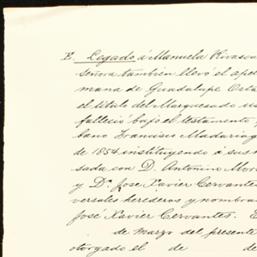 E. Legado á Manuela Rivasca
señora tambien llevó el ape
mana de Guadalupe Ortá
el título del Marquesado
falleció bajo el testamento
bano Francisco Madariag
de 1854 instituyendo á sus
sada con D. Antonino Mor
y Dn. José Xavier Cervantes
versales herederos y nombra
José Xavier Cervantes. E
de marzo del presente
otorgado el de de